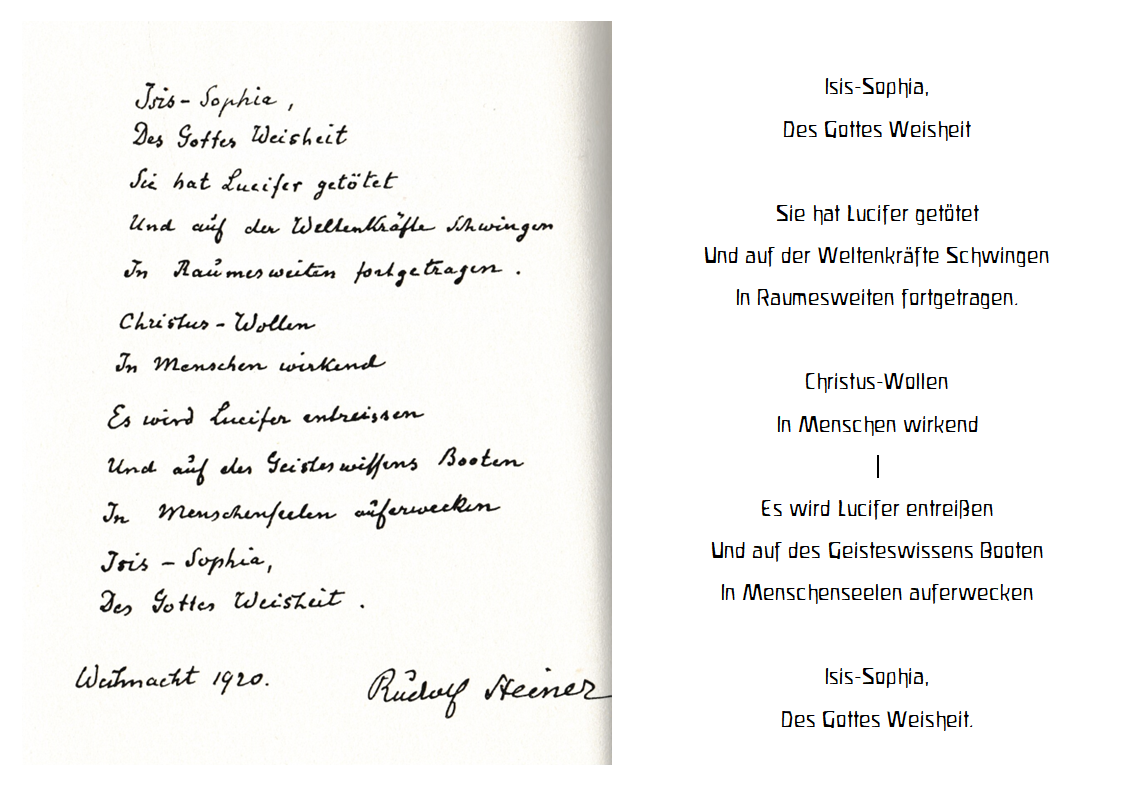 Isis-Sophia,
Des Gottes Weisheit
Sie hat Lucifer getötet
Und auf der Weltenkräfte Schwingen
In Raumesweiten fortgetragen.
Christus-Wollen
In Menschen wirkend
Es wird Lucifer entreissen
Und auf des Geisteswissens Booten
In Menschenseelen auferwecken
Isis-Sophia,
Des Gottes Weisheit.
Weihnacht 1920.
Rudolf Steiner
Isis-Sophia,
Des Gottes Weisheit
Sie hat Lucifer getötet
Und auf der Weltenkräfte Schwingen
In Raumesweiten fortgetragen.
Christus-Wollen
In Menschen wirkend
Es wird Lucifer entreißen
Und auf des Geisteswissens Booten
In Menschenseelen auferwecken
Isis-Sophia,
Des Gottes Weisheit.